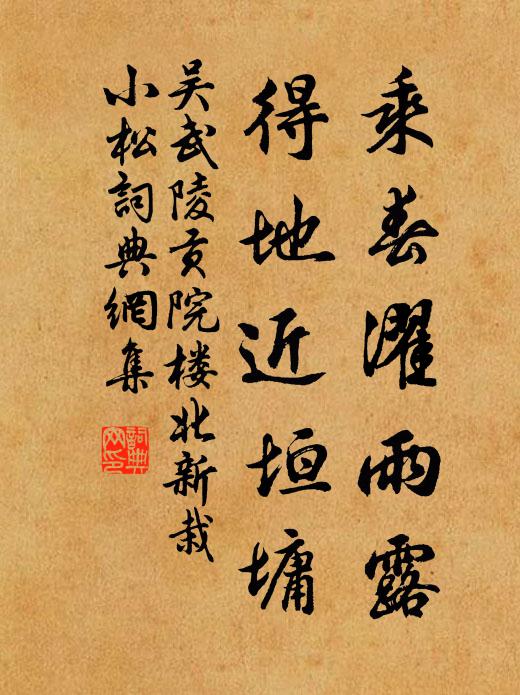 乘春濯雨露
得地近垣墉
吴武陵贡院楼北新栽
小松詞典網集
詞典网印